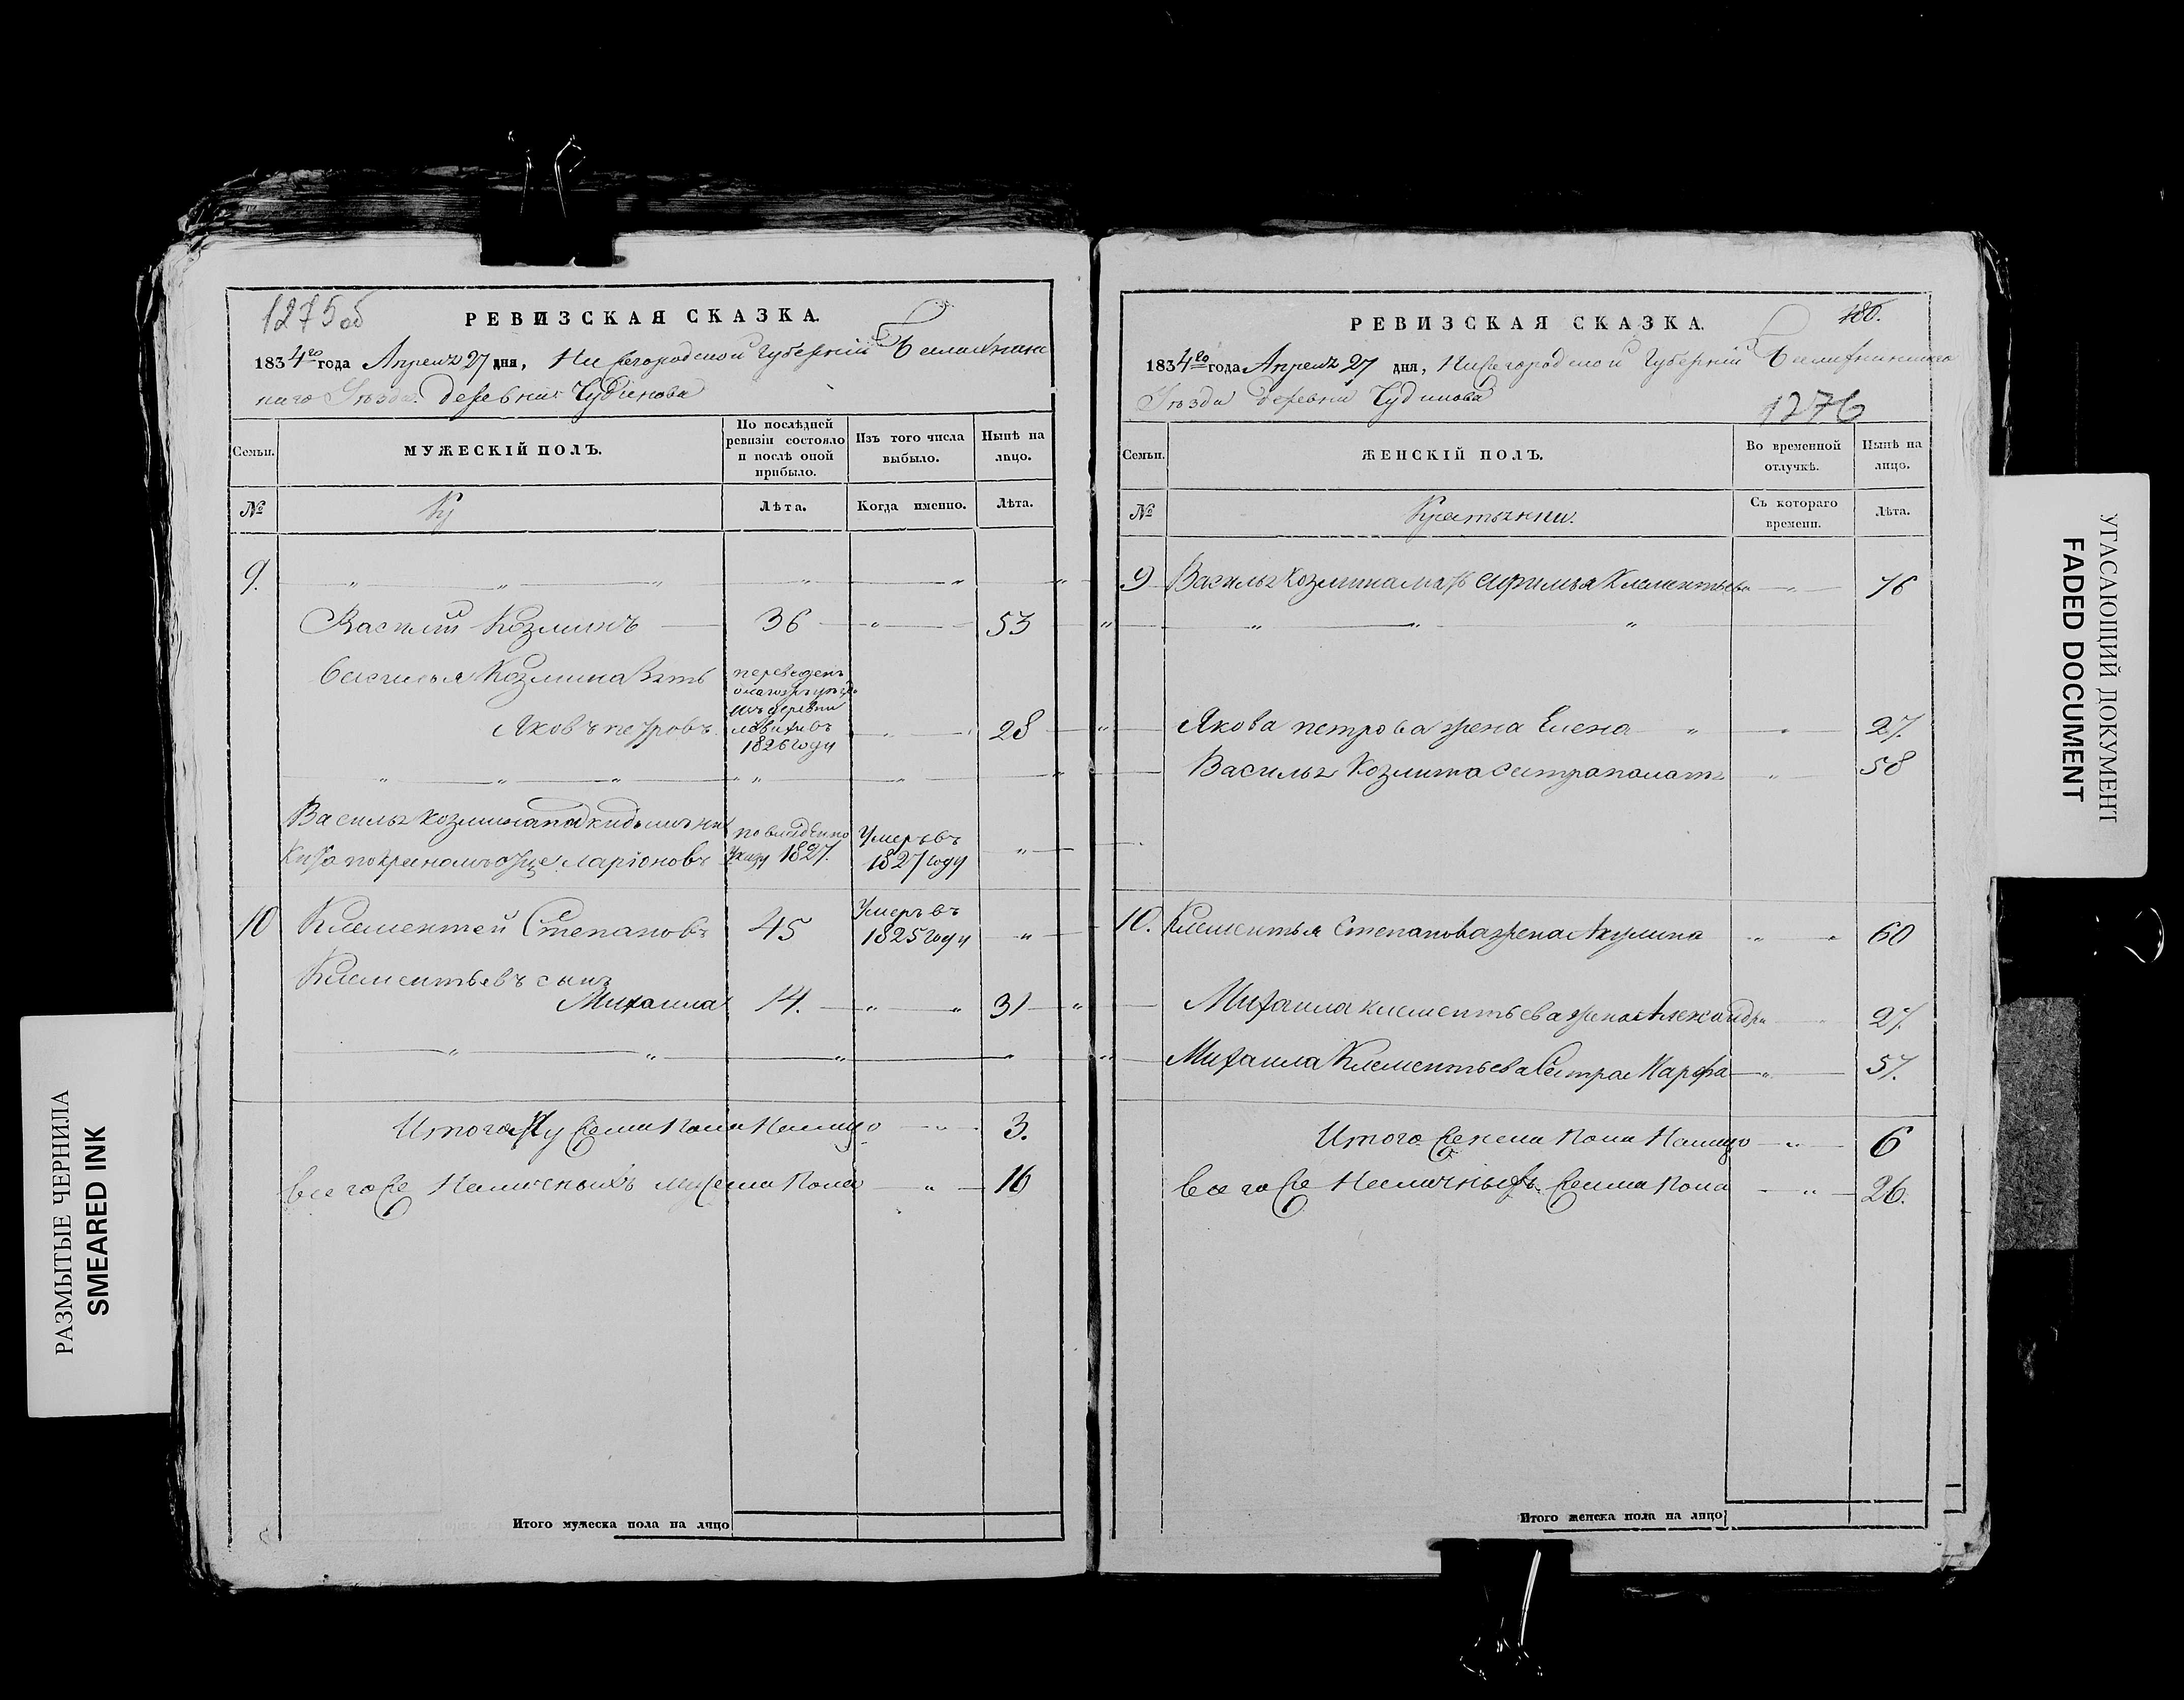 1275об
РЕВИЗСКАЯ СКАЗКА.
1834го года Апреля 27 дня, Нижегородской Губернии
Уезда деревни Чудинова
Семьи.
МУЖЕСКІЙ ПОЛЪ.
По послѣдней
ревизіи состояло
и послѣ оной
прибыло.
Изъ того числа
выбыло.
Нынѣ на
лицо.
№
Лѣта.
Когда именно.
Лѣта.
9.
Василий Козминъ 36 53
Василья Козмина Зять
Яковъ петровъ переведенъ
изъ деревни
въ
1826 году 28
Василья козмина
Ларіоновъ по
указу 1827. Умеръ въ
1827 году
10 Клементей Степановъ 45 Умеръ въ
1825 году
Клементьевъ сынъ
Михаила 14. 31
Итого Мужеска пола Налицо 3.
Всего же Наличныхъ мужеска Пола 16
Итого мужеска пола на лицо
РЕВИЗСКАЯ СКАЗКА.
180.
1834го года Апреля 27 дня, Нижегородской Губернии
Уезда деревни Чудинова
1276
Семьи.
ЖЕНСКІЙ ПОЛЪ.
Во временной
отлучкѣ.
Нынѣ на
лицо.
№
Съ котораго
времени.
Лѣта.
9 Василья Козмина мать Афимья Клементьева 76
Якова петрова жена Елена 27.
Василья Козмина сестра 58
10. Клементья Степанова жена Акулина 60
Михаила клементьева жена Александра 27.
Михаила Клементьева Сестра Марфа 57.
Итого Женска пола Налицо 6
Всего же Наличныхъ Женска Пола 26.
Итого женска пола на лицо
РАЗМЫТЫЕ ЧЕРНИЛА
SMEARED INK
УГАСАЮЩИЙ ДОКУМЕНТ
FADED DOCUMENT